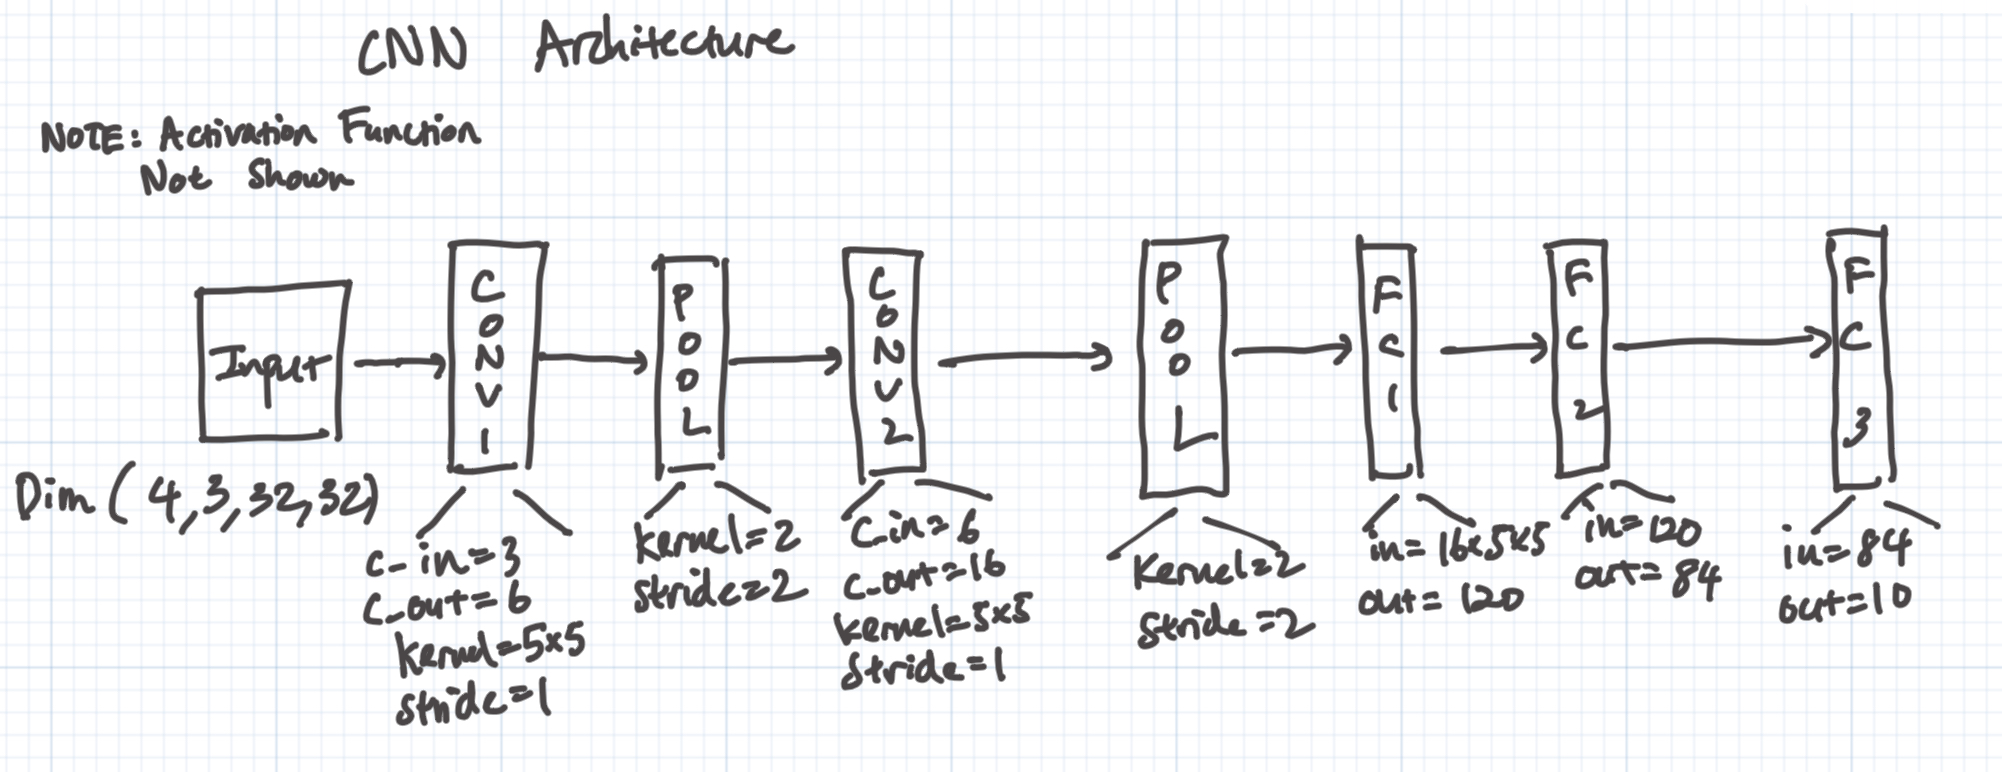 CNN Architecture
NOTE: Activation Function
Not Shown
Input
Dim (4,3,32,32)
CONV1
c_in=3
c_out=6
kernel=5x5
stride=1
POOL
kernel=2
stride=2
CONV2
c_in=6
c_out=16
kernel=5x5
stride=1
POOL
kernel=2
stride=2
FC1
in=16x5x5
out=120
FC2
in=120
out=84
FC3
in=84
out=10